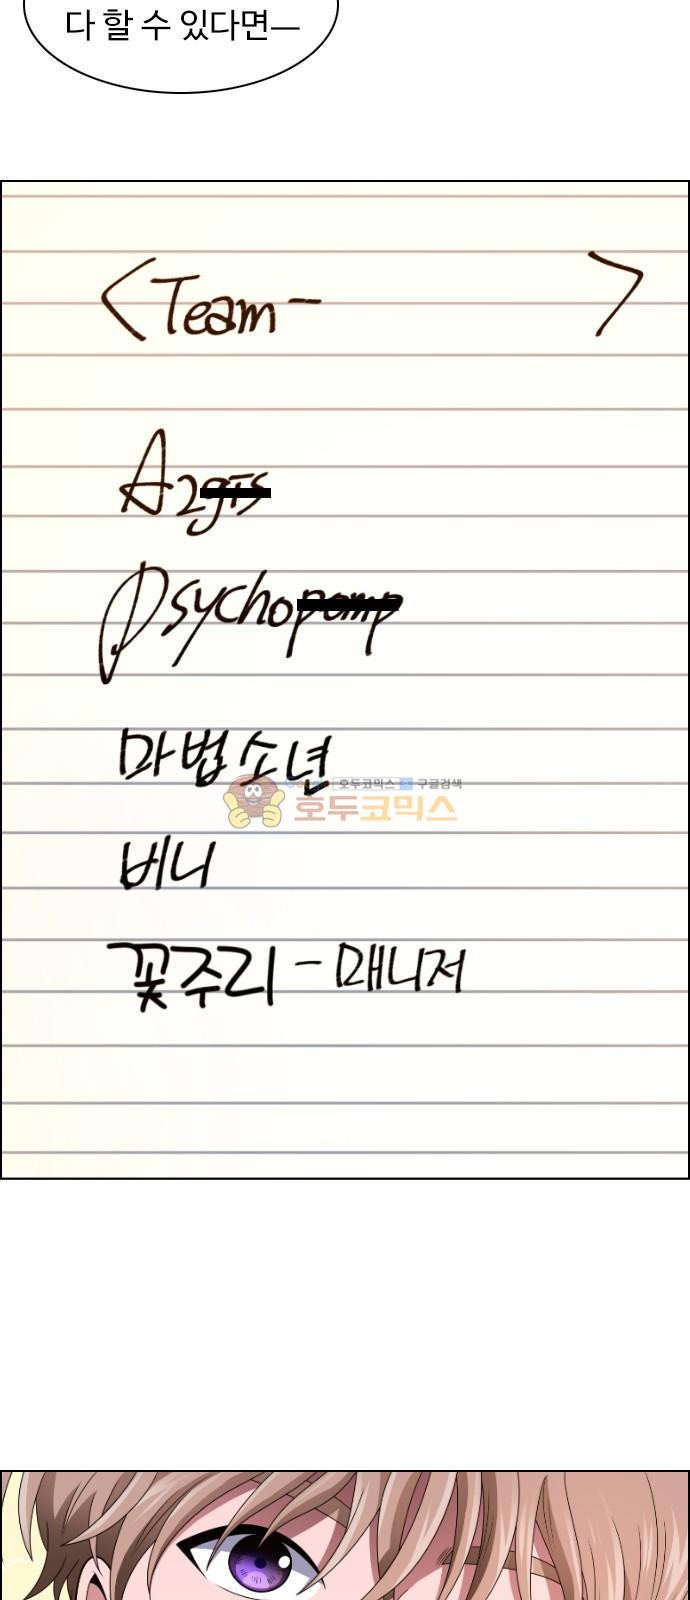 다 할 수 있다면—
<Team- >
A2gis
Psychopomp
마법소년
호두코믹스 구글검색
호두코믹스
버니
꽃주리 - 매니저